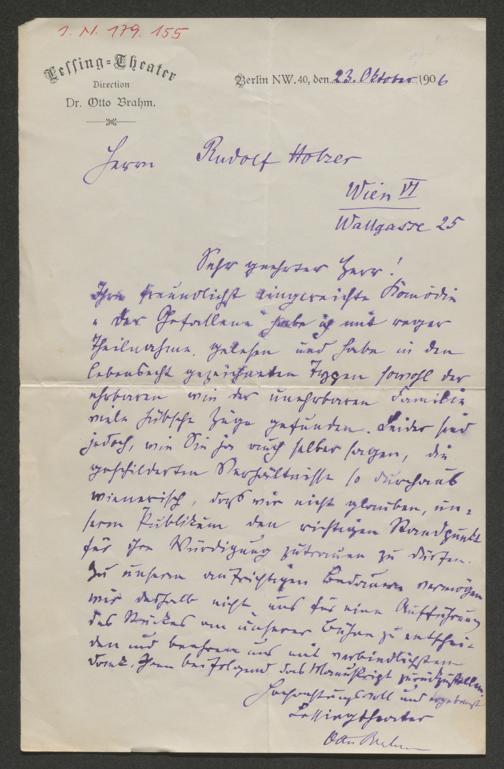 J. N. 179.155
Lessing-Theater
Direction
Dr. Otto Brahm.
Berlin NW. 40, den 23. Oktober 1906
Herrn Rudolf Holzer
Wien VI
Wallgasse 25
Sehr geehrter Herr!
Ihre freundlichst eingereichte Komödie
"Der Gefallene" habe ich mit reger
Theilnahme gelesen und habe in den
lebensecht gezeichneten Typen sowohl der
ehrbaren wie der unehrbaren Familie
viele hübsche Züge gefunden. Leider sind
jedoch, wie Sie ja auch selber sagen, die
geschilderten Verhältnisse so durchaus
wienerisch, dass wir nicht glauben, un-
serm Publikum den richtigen Standpunkt
für ihre Würdigung zutrauen zu dürfen.
Zu unserm aufrichtigen Bedauern vermögen
wir deshalb nicht, uns für eine Aufführung
des Stückes an unserer Bühne zu entschei-
den und beehren uns mit verbindlichstem
Dank, Ihnen beifolgend das Manuskript zurückzustellen.
Hochachtungsvoll und ergebenst
Lessingtheater
Otto Brahm